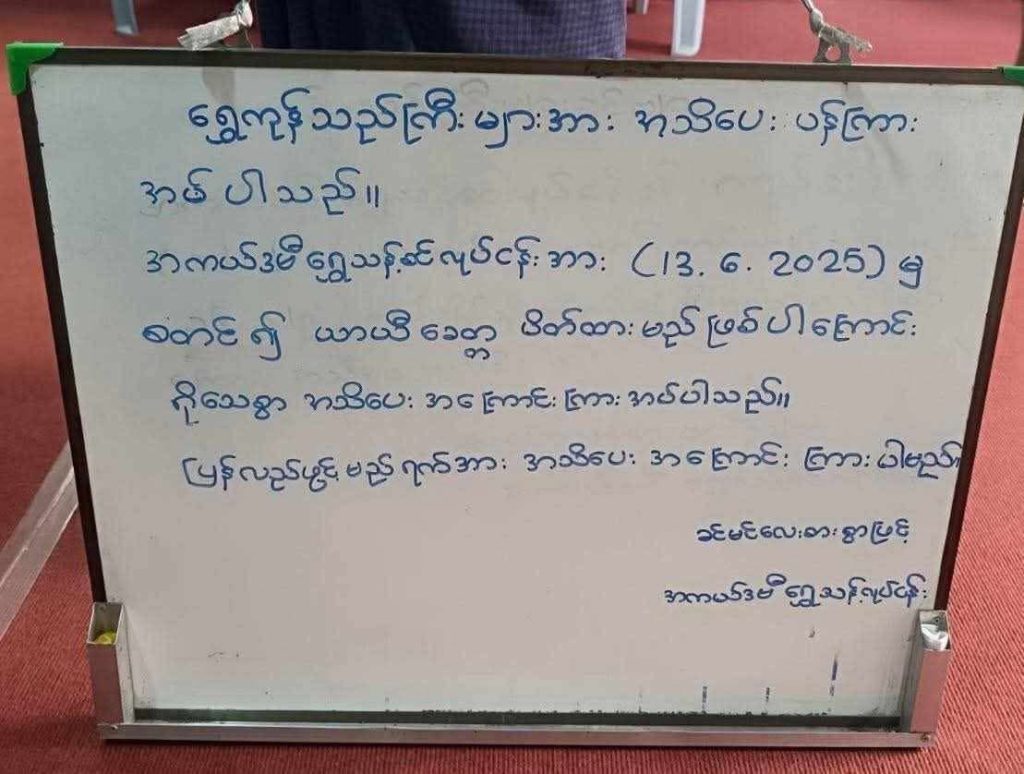 ရွှေကုန်သည်ကြီးများအား အသိပေး ပန်ကြား
အပ်ပါသည်။
အကယ်ဒမီရွှေသန့်စင်လုပ်ငန်းအား (13.6.2025) မှ
စတင်၍ ယာယီခေတ္တ ပိတ်ထားမည်ဖြစ်ပါကြောင်း
ရိုသေစွာ အသိပေးအကြောင်းကြားအပ်ပါသည်။
ပြန်လည်ဖွင့်မည်ရက်အား အသိပေး အကြောင်းကြားပါမည်။
ခင်မင်လေးစားစွာဖြင့်
အကယ်ဒမီရွှေသန့်လုပ်ငန်း